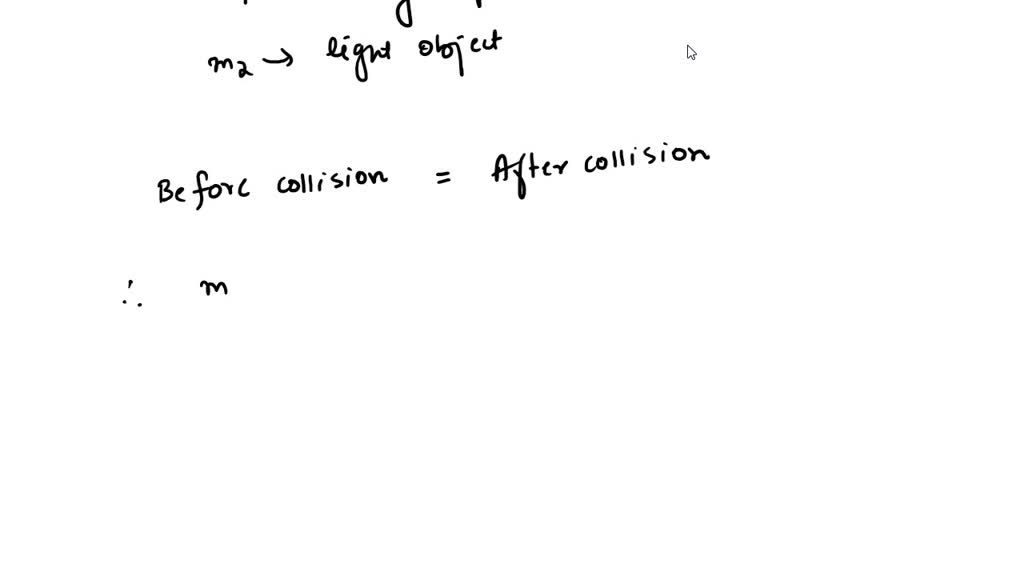 m2 → light object
Before collision = After collision
∴ m